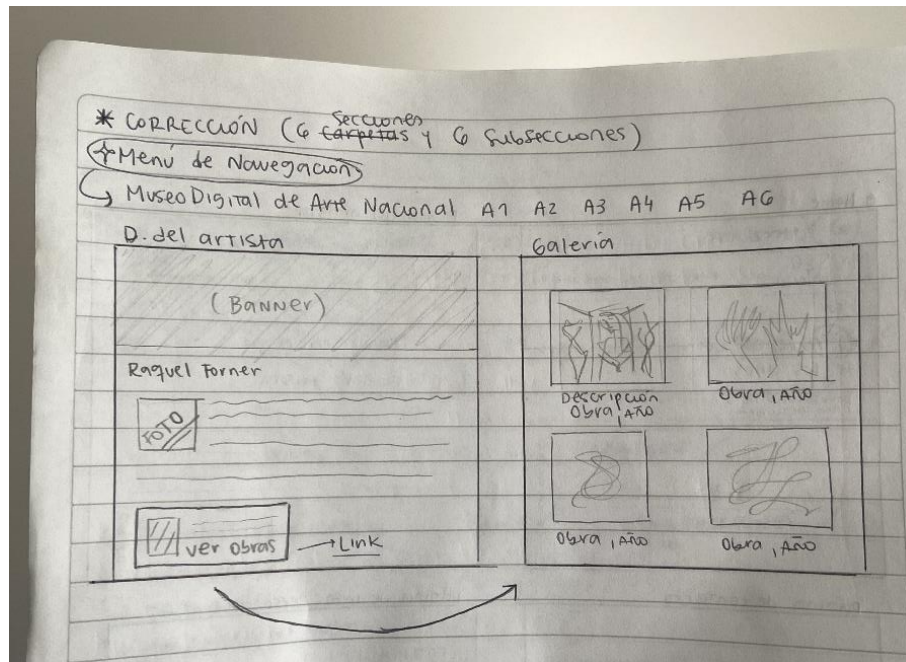 * CORRECCIÓN (6 carpetas Secciones y 6 Subsecciones)
Menú de Navegación
Museo Digital de Arte Nacional A1 A2 A3 A4 A5 A6
D. del artista
(Banner)
Raquel Forner
FOTO
ver obras → Link
Galería
Descripción
Obra, Año
Obra, Año
Obra, Año
Obra, Año